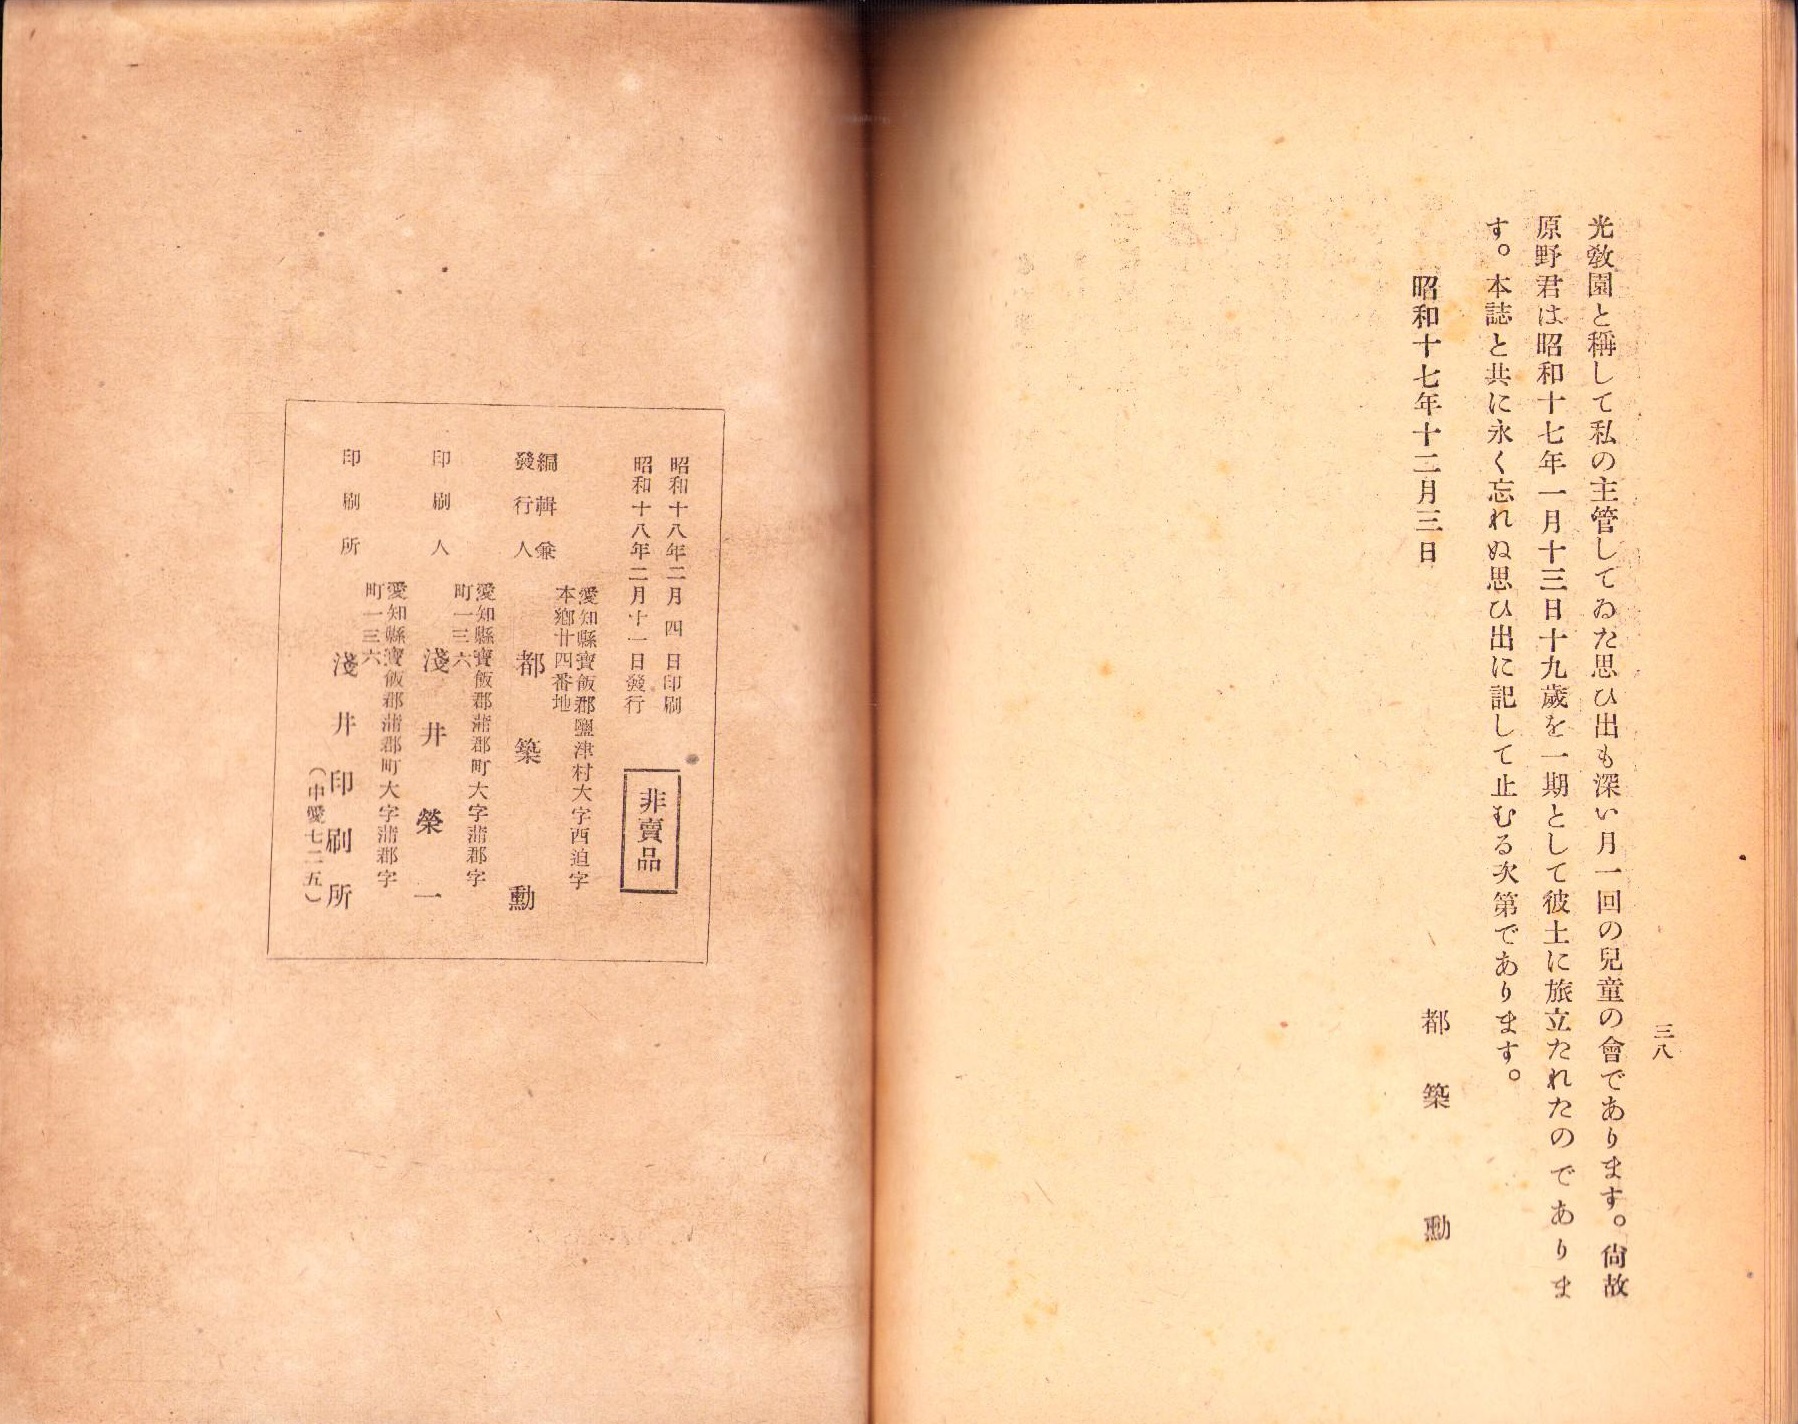 三八
光敎園と稱して私の主管してゐた思ひ出も深い月一回の兒童の會であります。尙故
原野君は昭和十七年一月十三日十九歲を一期として彼土に旅立たれたのであります
す。本誌と共に永く忘れぬ思ひ出に記して止むる次第であります。
昭和十七年十二月三日
都築勳
昭和十八年二月四日印刷
昭和十八年二月十一日發行
非賣品
編輯兼
發行人
愛知縣寶飯郡鹽津村大字西迫字
本鄕廿四番地
都築勳
印刷人
愛知縣寶飯郡蒲郡町大字蒲郡字
町一三六
淺井榮一
印刷所
愛知縣寶飯郡蒲郡町大字蒲郡字
町一三六
淺井印刷所
（中愛七二五）